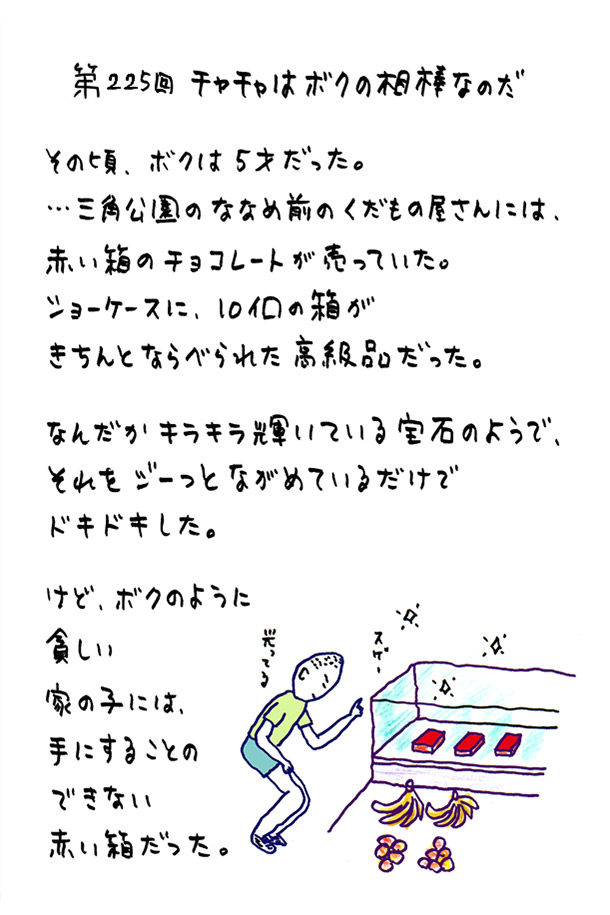 第225回 チャチャはボクの相棒なのだ
その頃、ボクは5才だった。
…三角公園のななめ前のくだもの屋さんには、
赤い箱のチョコレートが売っていた。
ショーケースに、10個の箱が
きちんとならべられた高級品だった。
なんだかキラキラ輝いている宝石のようで、
それをジーっとながめているだけで
ドキドキした。
けど、ボクのように
貧しい
家の子には、
手にすることの
できない
赤い箱だった。
光ってる
スゲー